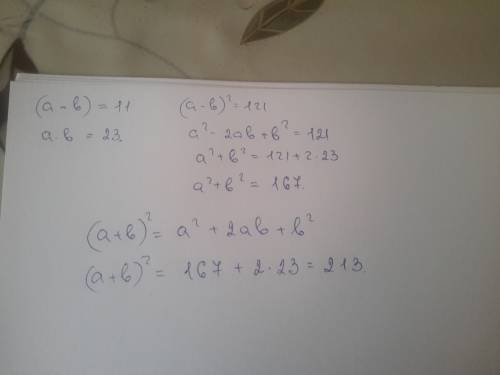 (a-b) = 11
a·b = 23
(a-b)² = 121
a² - 2ab + b² = 121
a² + b² = 121 + 2·23
a² + b² = 167.
(a+b)² = a² + 2ab + b²
(a+b)² = 167 + 2·23 = 213.